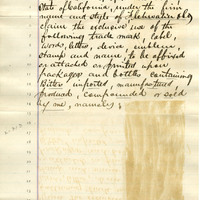 State of California, under the firm
name and style of
claim the exclusive use of the
following trade mark, label,
words, letters, device, emblem,
stamp and name, to be affixed
or attached or printed upon
packages and bottles containing
Bitters imported, manufactured,
produced, compounded or sold
by me, namely;